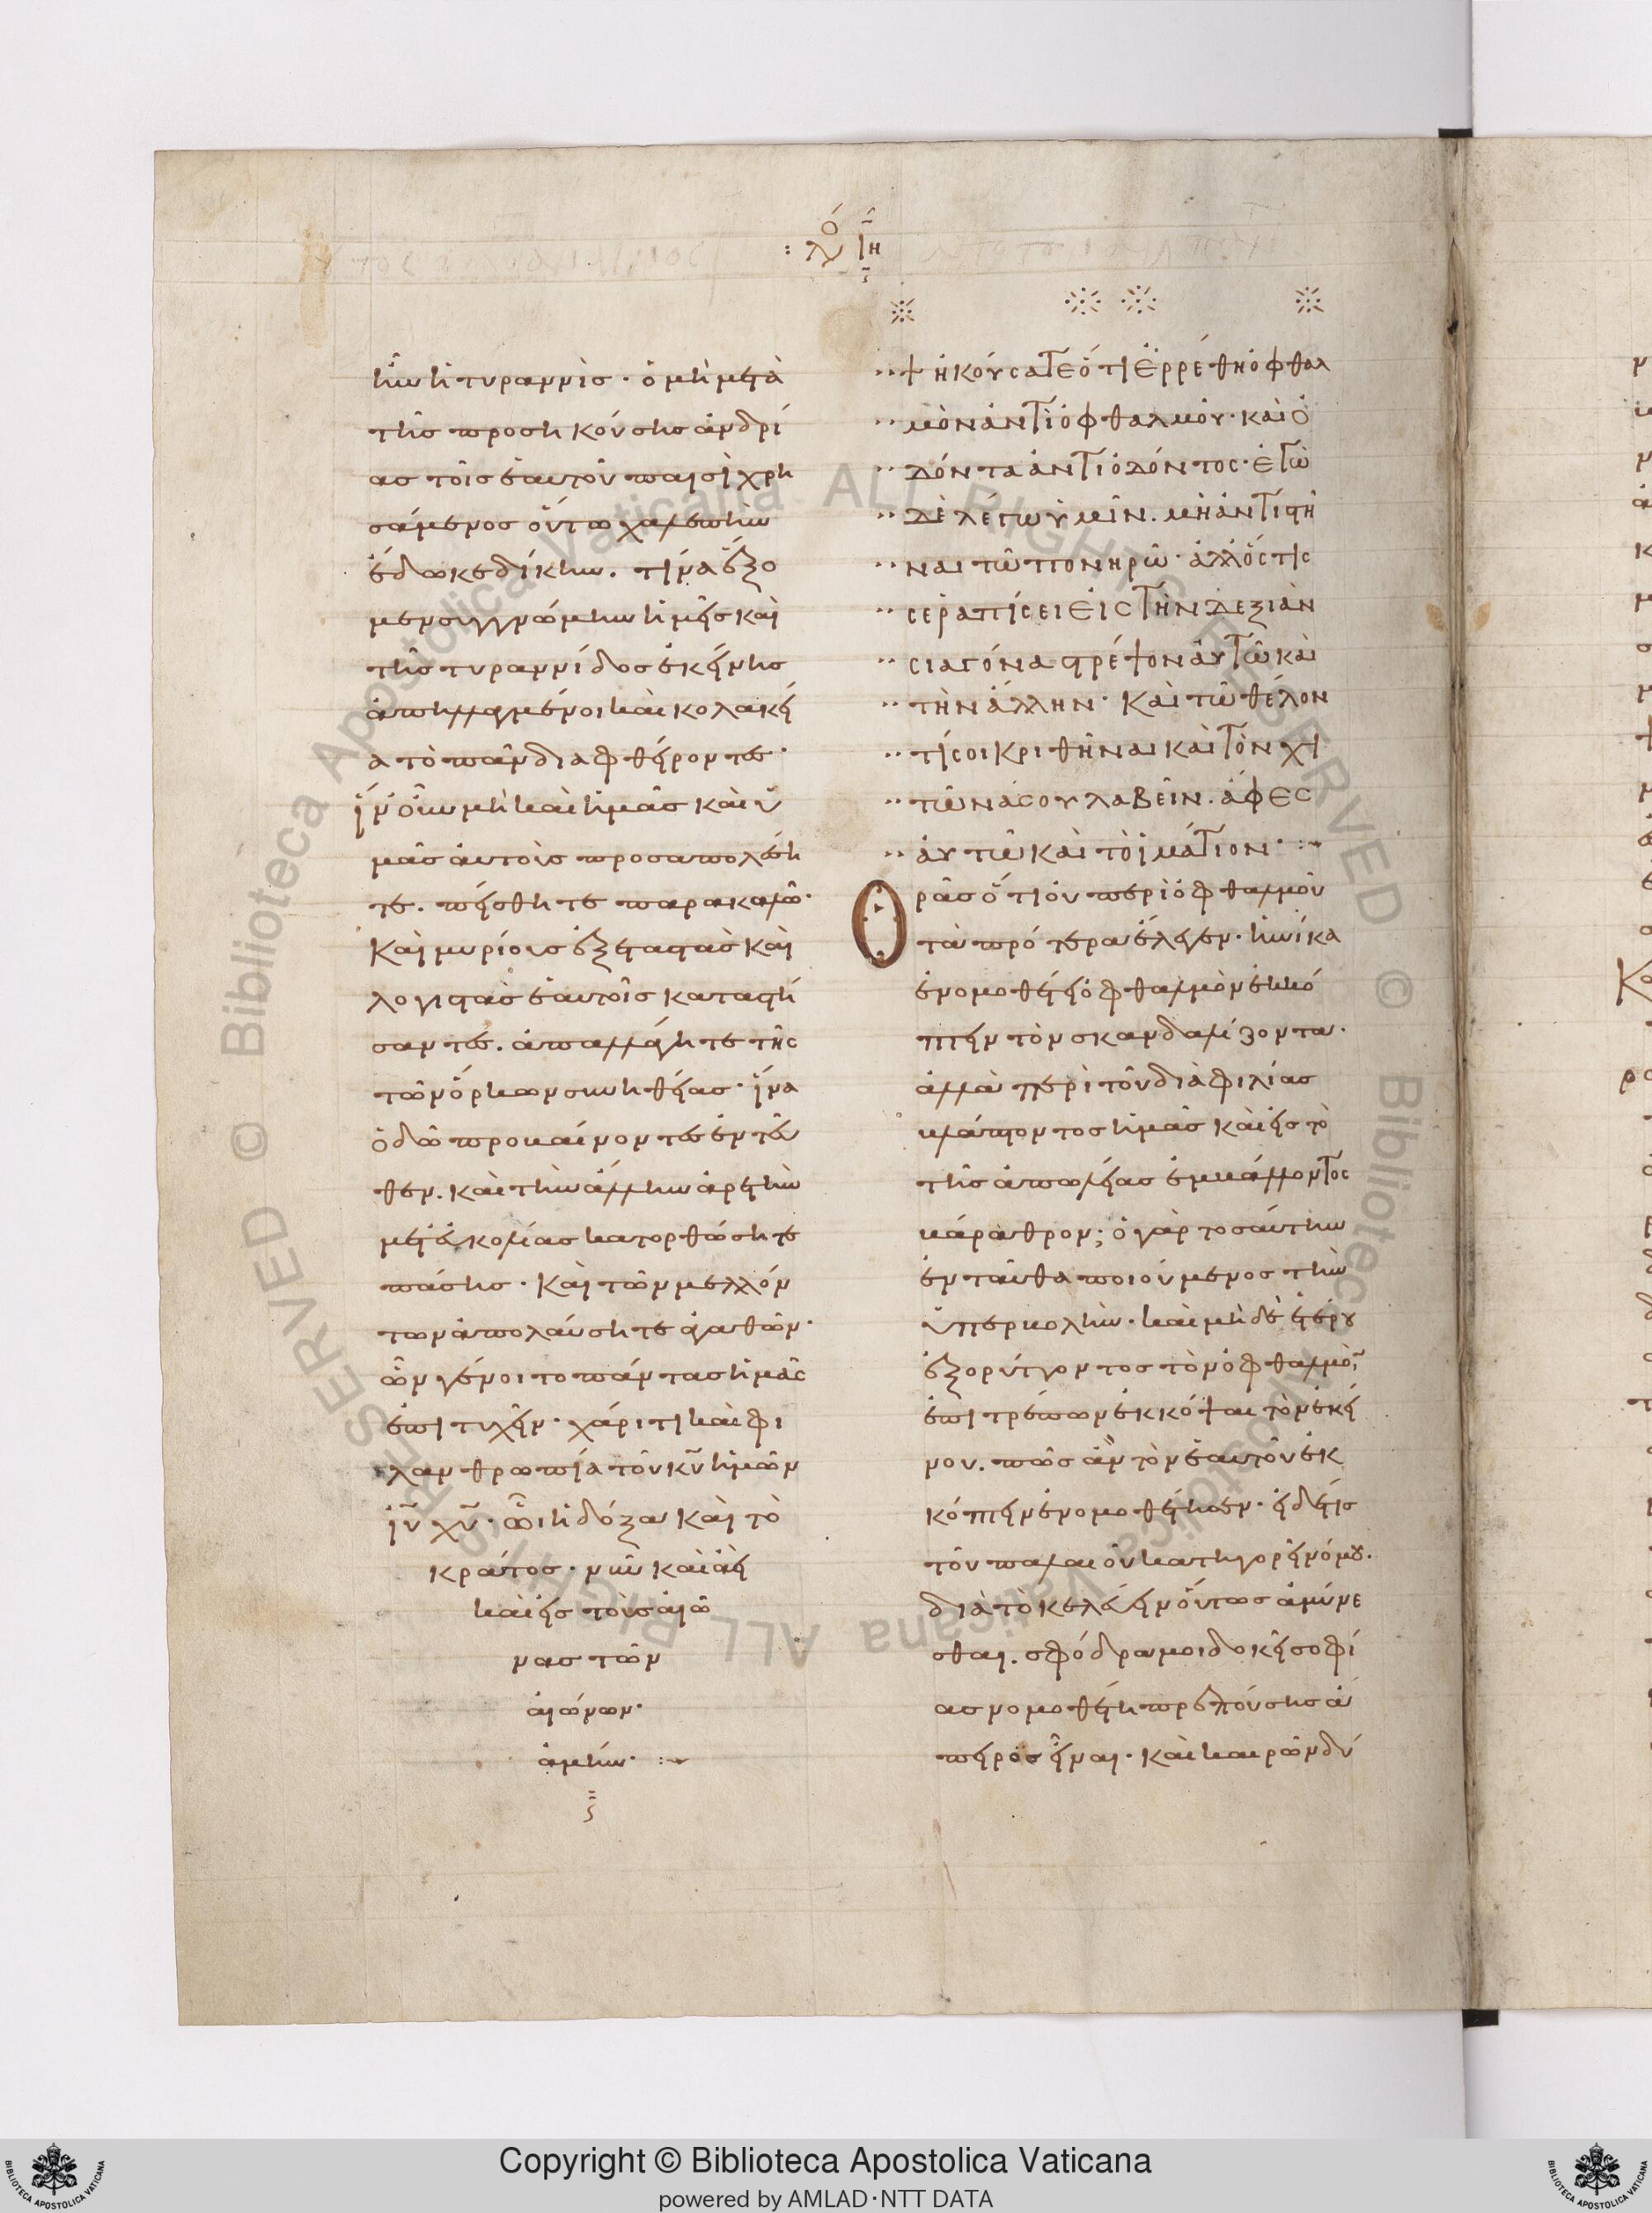 : λό ιη
ἣν ἡ τυραννὶς· ὁ μὴ μετὰ
τῆς προσηκούσης ἀνδρί
ας τοῖς ἑαυτοῦ παισὶ χρη
σάμενος οὕτω χαλεπὴν
ἔδωκε δίκην. τίνα ἕξο
μεν συγγνώμην ἡμεῖς καὶ
τῆς τυραννίδος ἐκείνης
ἀπηλλαγμένοι καὶ κολακεί
α τὸ πᾶν διαφθείροντες·
ἵν' οὖν μὴ καὶ ἡμᾶς καὶ ὑ
μᾶς αὐτοὺς προσαπολέση
τε. πείσθητε παρακαλῶ·
Καὶ μυρίους ἐξεταστὰς καὶ
λογιστὰς ἑαυτοῖς καταστή
σαντες. ἀπαλλάγητε τῆς
τῶν ὅρκων συνηθείας· ἵνα
ὁδῷ προβαίνοντες ἐντεῦ
θεν. καὶ τὴν ἄλλην ἀρετὴν
μετ' εὐκολίας κατορθώσητε
πάσης· Καὶ τῶν μελλόν
των ἀπολαύσητε ἀγαθῶν·
ὧν γένοιτο πάντας ἡμᾶς
ἐπιτυχεῖν· χάριτι καὶ φι
λανθρωπία τοῦ κυ ἡμῶν
ιυ χυ· ᾧ ἡ δόξα καὶ τὸ
κράτος· νῦν καὶ ἀεὶ
καὶ εἰς τοὺς αἰῶ
νας τῶν
αἰώνων·
ἀμήν· :~
Ἠκούσατε ὅτι ἐρρέθη ὀφθαλ
μὸν ἀντὶ ὀφθαλμοῦ· καὶ ὀ
δόντα ἀντὶ ὀδόντος· ἐγὼ
δὲ λέγω ὑμῖν. μὴ ἀντιστῆ
ναι τῶ πονηρῶ· ἀλλ' ὅστις
σε ῥαπίσει εἰς τὴν δεξιὰν
σιαγόνα στρέψον αὐτῶ καὶ
τὴν ἄλλην· Καὶ τῶ θέλον
τί σοι κριθῆναι καὶ τὸν χι
τῶνά σου λαβεῖν. ἄφες
αὐτῶ καὶ τὸ ἱμάτιον· :~
Ὁρᾶς ὅτι οὐ περὶ ὀφθαλμοῦ
τὰ πρότερα ἔλεγεν· ἡνίκα
ἐνομοθέτει ὀφθαλμὸν ἐκκό
πτειν τὸν σκανδαλίζοντα·
ἀλλὰ περὶ τοῦ διὰ φιλίας
βλάπτοντος ἡμᾶς καὶ εἰς τὸ
τῆς ἀπωλείας ἐμβάλλοντος
βάραθρον; ὁ γὰρ τοσαύτην
ἐνταῦθα ποιούμενος τὴν
ὑπερβολὴν· καὶ μὴ δὲ ἑτέρου
ἐξορύττοντος τὸν ὀφθαλμὸν
ἐπιτρέπων ἐκκόψαι τὸν ἐκεί
νου. πῶς ἂν τὸν ἑαυτοῦ ἐκ
κόπτειν ἐνομοθέτησεν· εἰ δέ τις
τοῦ παλαιοῦ κατηγορεῖ νόμου.
διὰ τὸ κελεύειν οὕτως ἀμύνε
σθαι. σφόδρα μοι δοκεῖ σοφί
ας νομοθέτη πρεπούσης ἄ
πειρος εἶναι· καὶ καιρῶν δύ